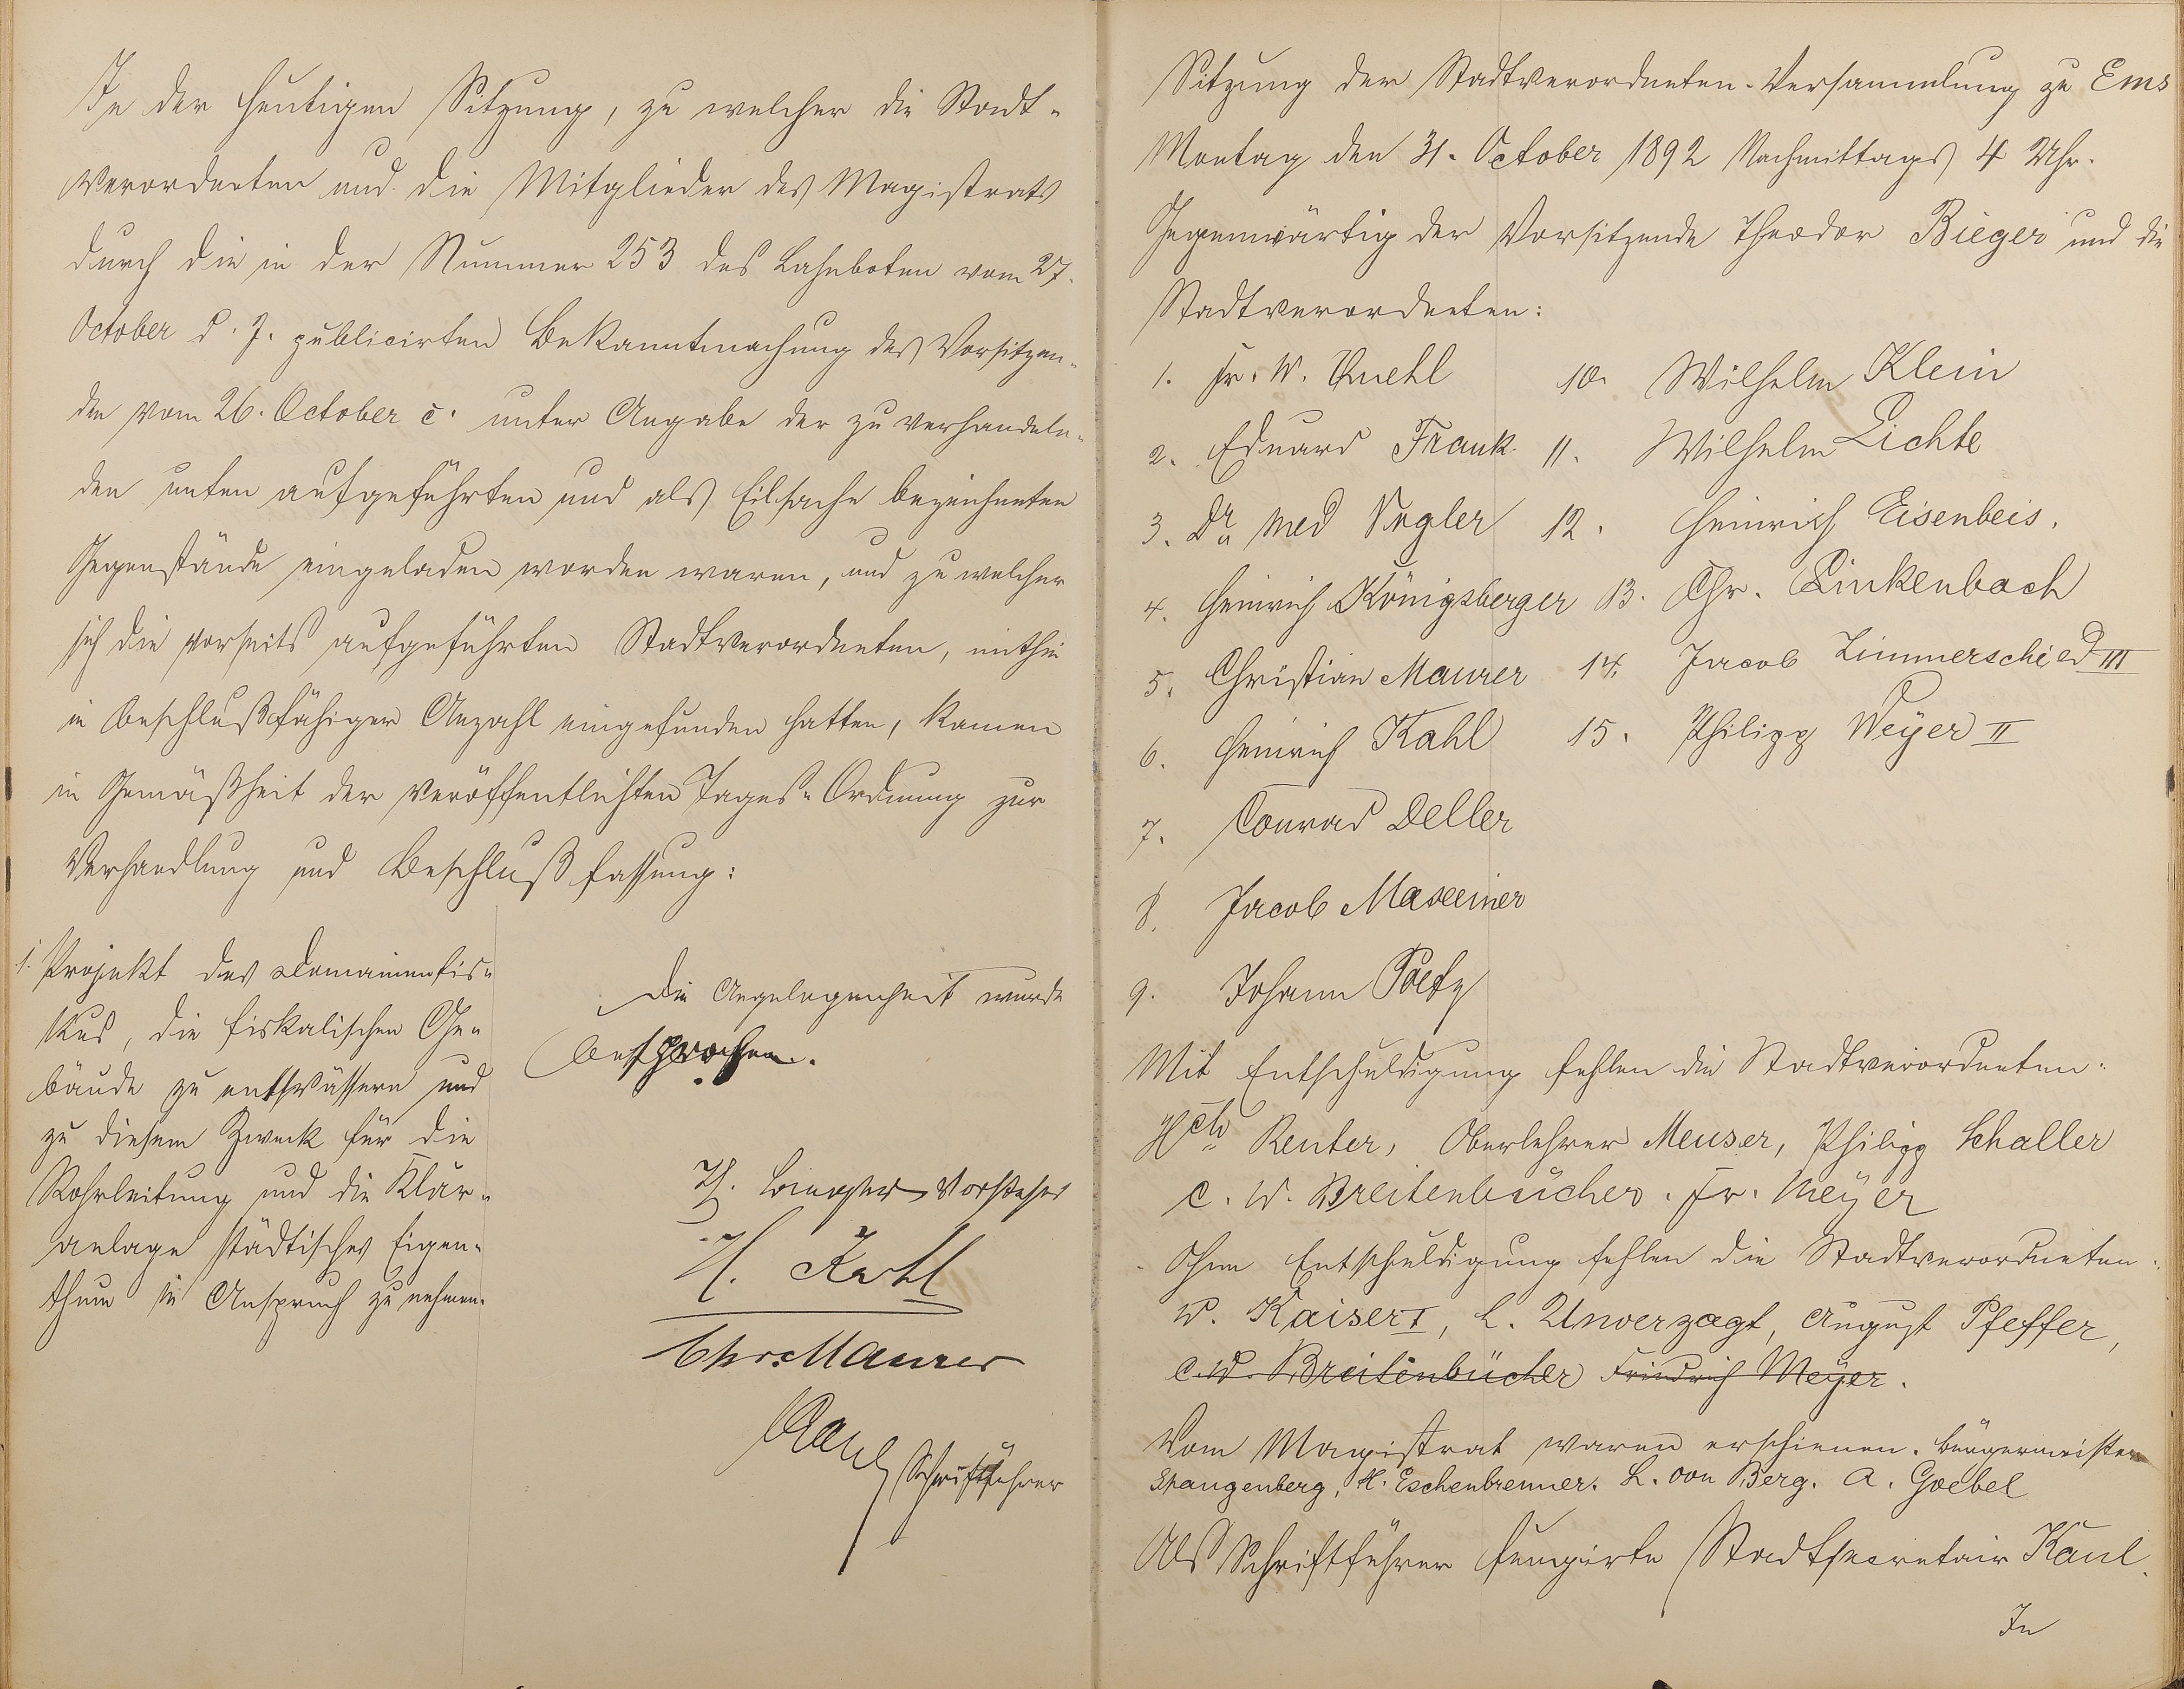 In der heutigen Sitzung, zu welcher die Stadt-
verordneten und die Mitglieder des Magistrats
durch die in der Nummer 253 des Lahnboten vom 27.
October d. J. publicirten Bekanntmachung des Vorsitzen-
den vom 26. October c. unter Angabe der zu verhandeln-
den unten aufgeführten und als Eilsache bezeichneten
Gegenstände eingeladen worden waren, und zu welcher
sich die vorseits aufgeführten Stadtverordneten, mithin
in beschlußfähiger Anzahl eingefunden hatten, kamen
in Gemäßheit der veröffentlichten Tages-Ordnung zur
Verhandlung und Beschlußfassung:
1. Projekt des Domainenfis-
kus, die fiskalischen Ge-
bäude zu entwässern und
zu diesem Zweck für die
Rohrleitung und die Klär-
anlage städtisches Eigen-
thum in Anspruch zu nehmen.
Die Angelegenheit wurde
besprochen.
Th. Bieger Vorsteher
H. Kahl
Chr. Maurer
Kaul Schriftführer
Sitzung der Stadtverordneten-Versammlung zu Ems
Montag den 31. October 1892 Nachmittags 4 Uhr.
Gegenwärtig der Vorsitzende Theodor Bieger und die
Stadtverordneten:
1. Fr. W. 
2. Eduard Frank.
3. Dr. med Vogler
4. Heinrich Königsberger
5. Christian Maurer
6. Heinrich Kahl
7. Conrad Deller
8. Jacob Maxeiner
9. Johann Poetz
10. Wilhelm Klein
11. Wilhelm Lichte
12. Heinrich Eisenbeis.
13. Chr. Linkenbach
14. Jacob Zimmerschied III
15. Philipp Weyer II
Mit Entschuldigung fehlen die Stadtverordneten:
Hch Reuter, Oberlehrer Meuser, Philipp Schaller
C. W. Breitenbücher. Fr. Meyer
Ohne Entschuldigung fehlen die Stadtverordneten:
W. Kaiser I, L. Unverzagt, August Pfeffer,
C. W. Breitenbücher Friedrich Meyer.
Vom Magistrat waren erschienen. Bürgermeister
Spangenberg, H. Eschenbrenner. L. von Berg. A. Goebel
Als Schriftführer fungirte Stadtsecretair Kaul.
In